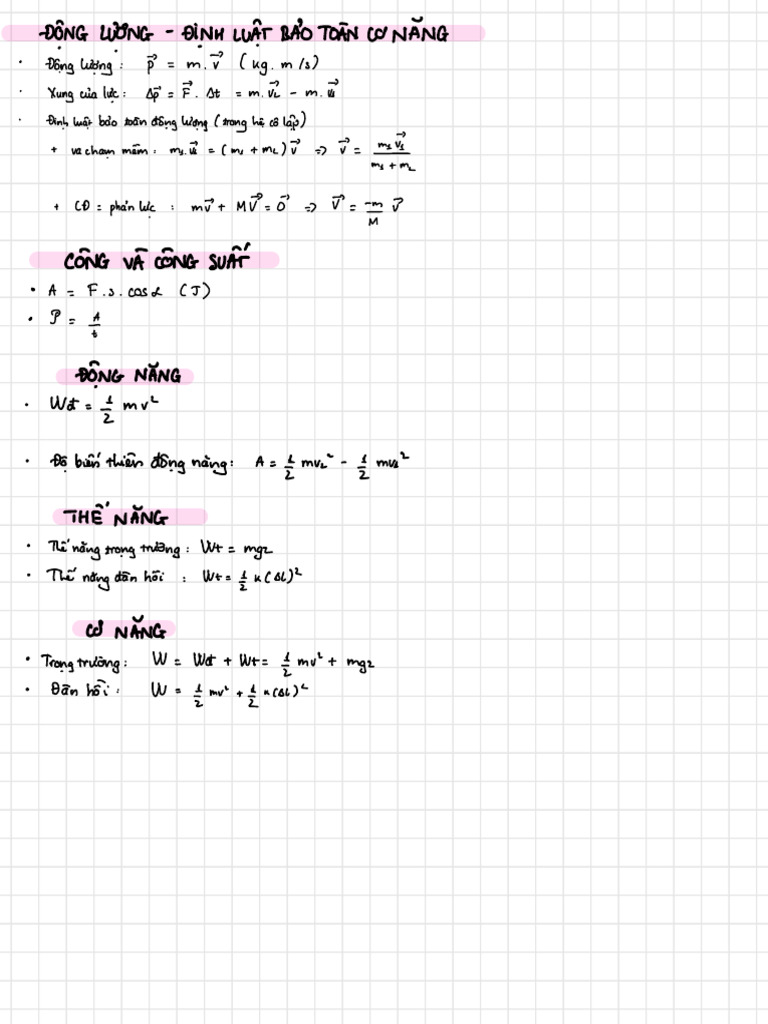 ĐỘNG LƯỢNG - ĐỊNH LUẬT BẢO TOÀN CƠ NĂNG
· Động lượng : p⃗ = m . v⃗ ( kg . m /s)
· Xung của lực : Δp⃗ = F⃗ . Δt = m. v⃗₂ - m. v⃗₁
· Định luật bảo toàn động lượng ( trong hệ cô lập )
+ va chạm mềm : m₁. v⃗₁ = ( m₁ + m₂ ) v⃗ => v⃗ = m₁ v⃗₁ / (m₁ + m₂)
+ CĐ = phản lực : mv⃗ + MV⃗ = 0⃗ => V⃗ = -m/M v⃗
CÔNG VÀ CÔNG SUẤT
• A = F . s . cosα ( J )
• P = A/t
ĐỘNG NĂNG
· Wđ = 1/2 mv²
· Độ biến thiên động năng : A = 1/2 mv₂² - 1/2 mv₁²
THẾ NĂNG
• Thế năng trọng trường : Wt = mgz
• Thế năng đàn hồi : Wt = 1/2 k(Δl)²
CƠ NĂNG
• Trọng trường : W = Wđ + Wt = 1/2 mv² + mgz
• Đàn hồi : W = 1/2 mv² + 1/2 k(Δl)²